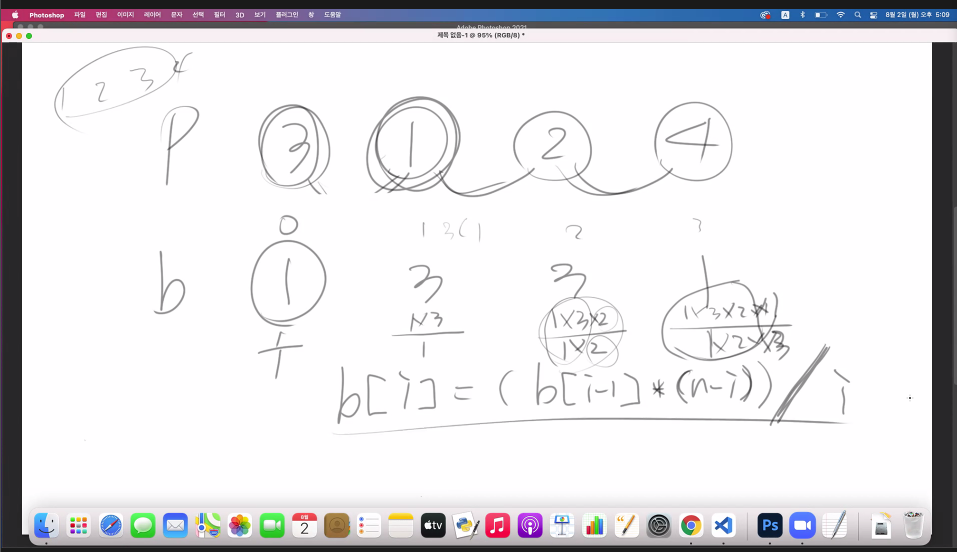 Photoshop 파일 편집 이미지 레이어 문자 선택 필터 3D 보기 플러그인 창 도움말 A 8월 2일 (월) 오후 5:09
Adobe Photoshop 2021
제목 없음-1 @ 95% (RGB/8) *
1 2 3 4
P 3 1 2 4
0 1 3C1 2 3
b 1 3 3 1
1/1 1×3/1 1×3×2/1×2 1×3×2×1/1×2×3
b[i] = (b[i-1] * (n-i)) / i
8월 2 tv Ps